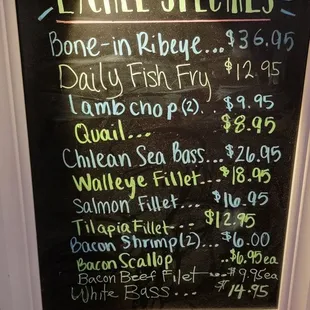 SPECIALTIES
Bone-in Ribeye... $36.95
Daily Fish Fry $12.95
Lamb chop (2). $9.95
Quail... $8.95
Chilean Sea Bass... $26.95
Walleye Fillet... $18.95
Salmon Fillet... $16.95
Tilapia Fillet... $12.95
Bacon Shrimp (2).. $6.00
Bacon Scallop ..$6.95ea
Bacon Beef Filet ... $9.95ea
White Bass... $14.95